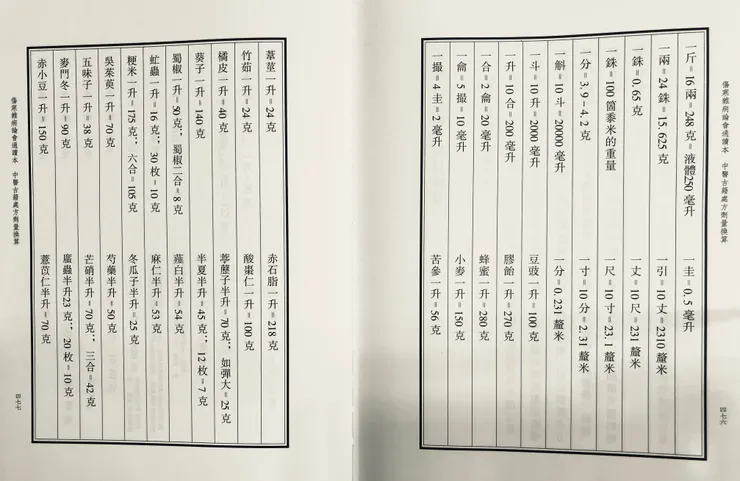 傷寒雜病論會通讀本 中醫古籍處方劑量換算
一斤=16兩=248克=液體250毫升 一圭=0.5毫升
一兩=24銖=15.625克 一引=10丈=2310釐米
一銖=0.65克 一丈=10尺=231釐米
一銖=100箇黍米的重量 一尺=10寸=23.1釐米
一分=3.9-4.2克 一寸=10分=2.31釐米
一斛=10斗=20000毫升 一分=0.231釐米
一斗=10升=2000毫升 豆豉一升=100克
一升=10合=200毫升 膠飴一升=270克
一合=2龠=20毫升 蜂蜜一升=280克
一龠=5撮=10毫升 小麥一升=150克
一撮=4圭=2毫升 苦參一升=56克
四七六
葦莖一升=24克 赤石脂一升=218克
竹茹一升=24克 酸棗仁一升=100克
橘皮一升=40克 葶藶子半升=70克;如彈大=25克
葵子一升=140克 半夏半升=45克;12枚=7克
蜀椒一升=50克;蜀椒二合=8克 薤白半升=54克
虻蟲一升=16克;30枚=10克 麻仁半升=53克
粳米一升=175克;六合=105克 冬瓜子半升=25克
吳茱萸一升=70克 芍藥半升=50克
五味子一升=38克 芒硝半升=70克;三合=42克
麥門冬一升=90克 䗪蟲半升23克;20枚=10克
赤小豆一升=150克 薏苡仁半升=70克
傷寒雜病論會通讀本 中醫古籍處方劑量換算
四七七